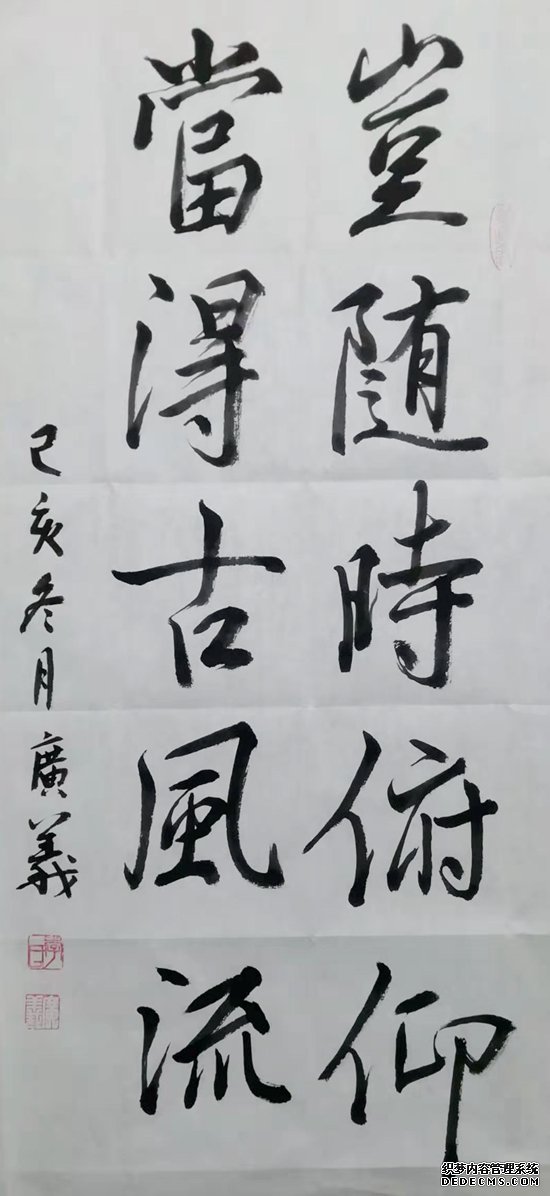 豈随時俯仰
當得古風流
己亥冬月廣義
织梦内容管理系统
DEDECMS.COM